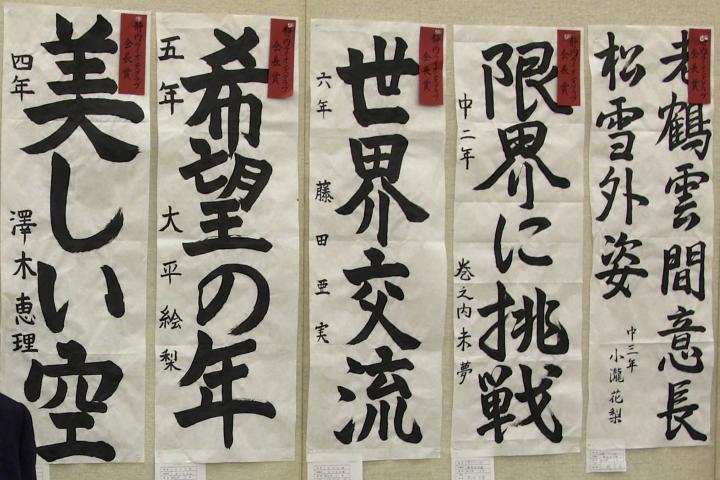 老鶴雲間意長
松雪外姿
中三年
小瀧花梨
会長賞
限界に挑戦
中二年
巻之内未夢
会長賞
世界交流
六年
藤田亜実
会長賞
希望の年
五年
大平絵梨
会長賞
美しい空
四年
澤木恵理
会長賞